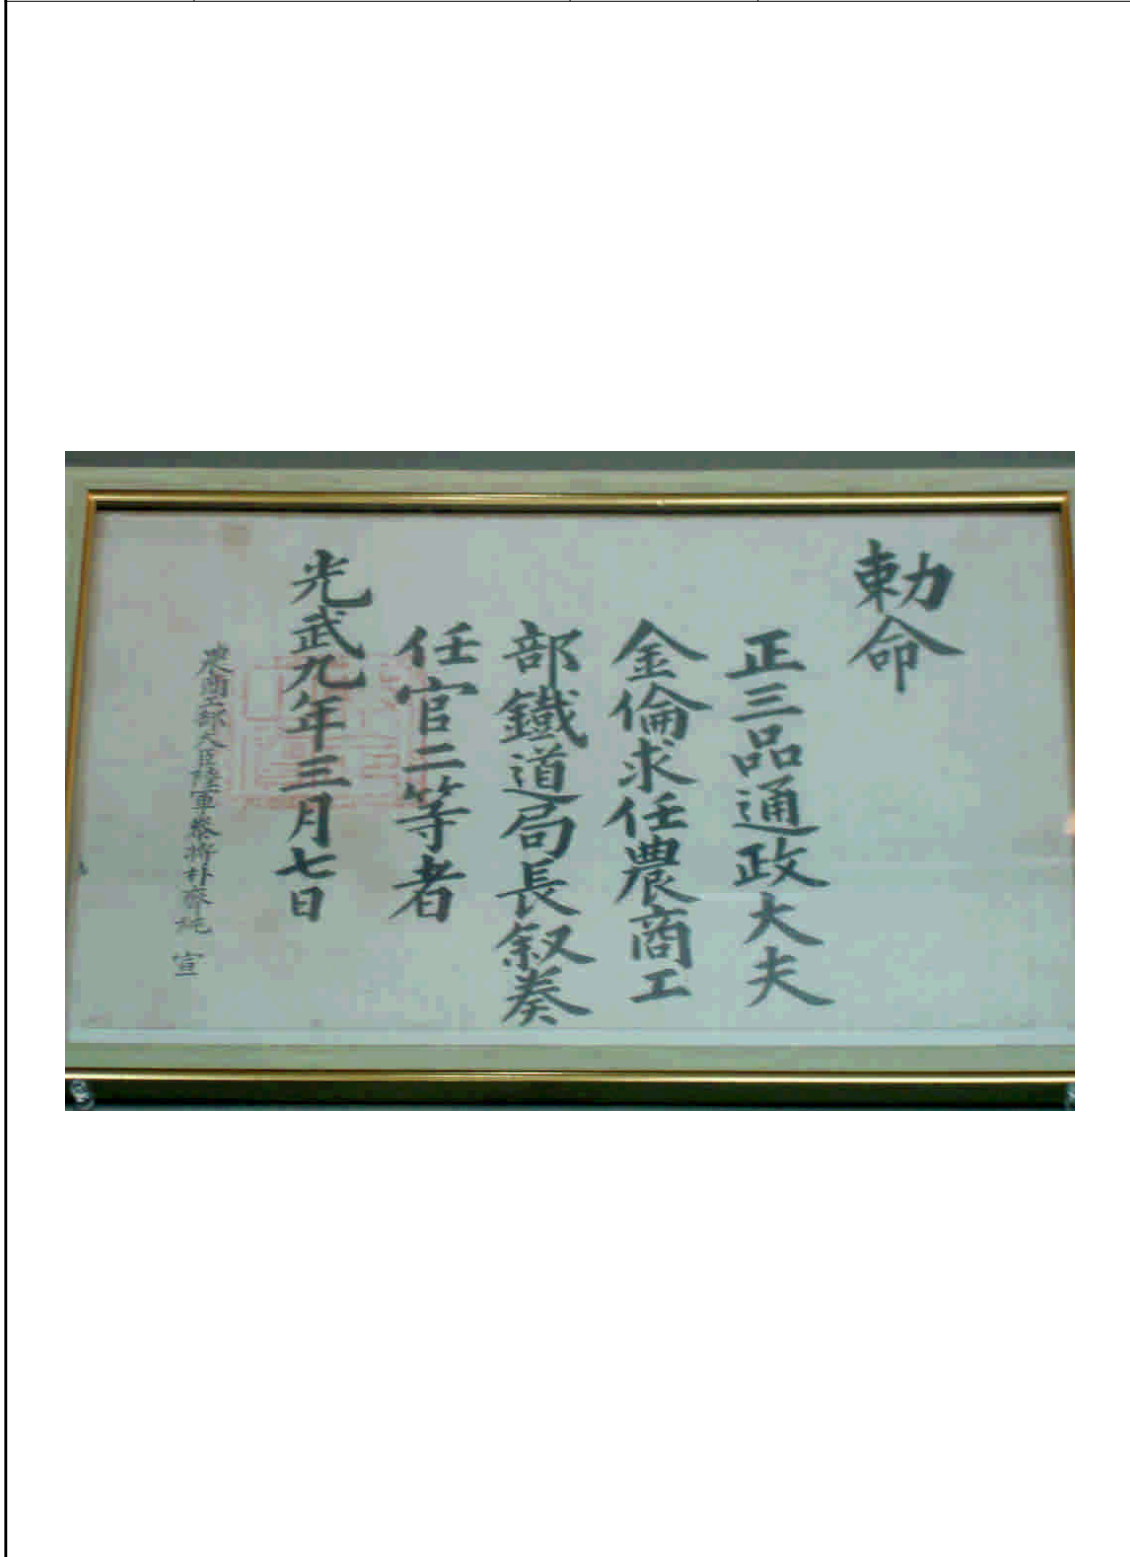 勅命
正三品通政大夫
金倫求任農商工
部鐵道局長叙奏
任官二等者
光武九年三月七日
農商工部大臣陸軍參將朴齊純 宣